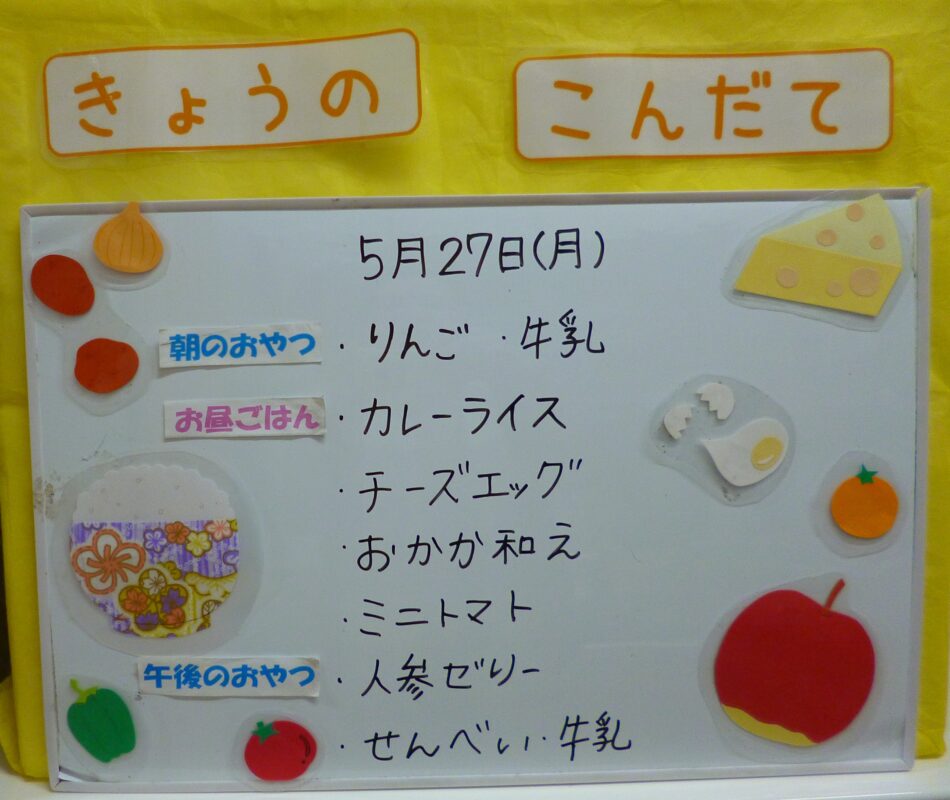 きょうの こんだて
5月27日(月)
朝のおやつ ・りんご ・牛乳
お昼ごはん ・カレーライス
・チーズエッグ
・おかか和え
・ミニトマト
午後のおやつ ・人参ゼリー
・せんべい・牛乳